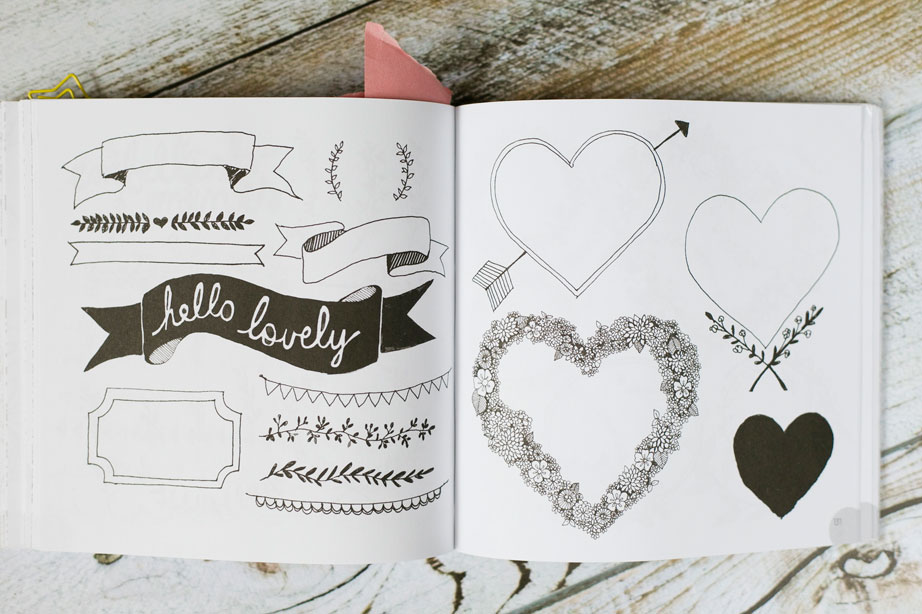 hello lovely